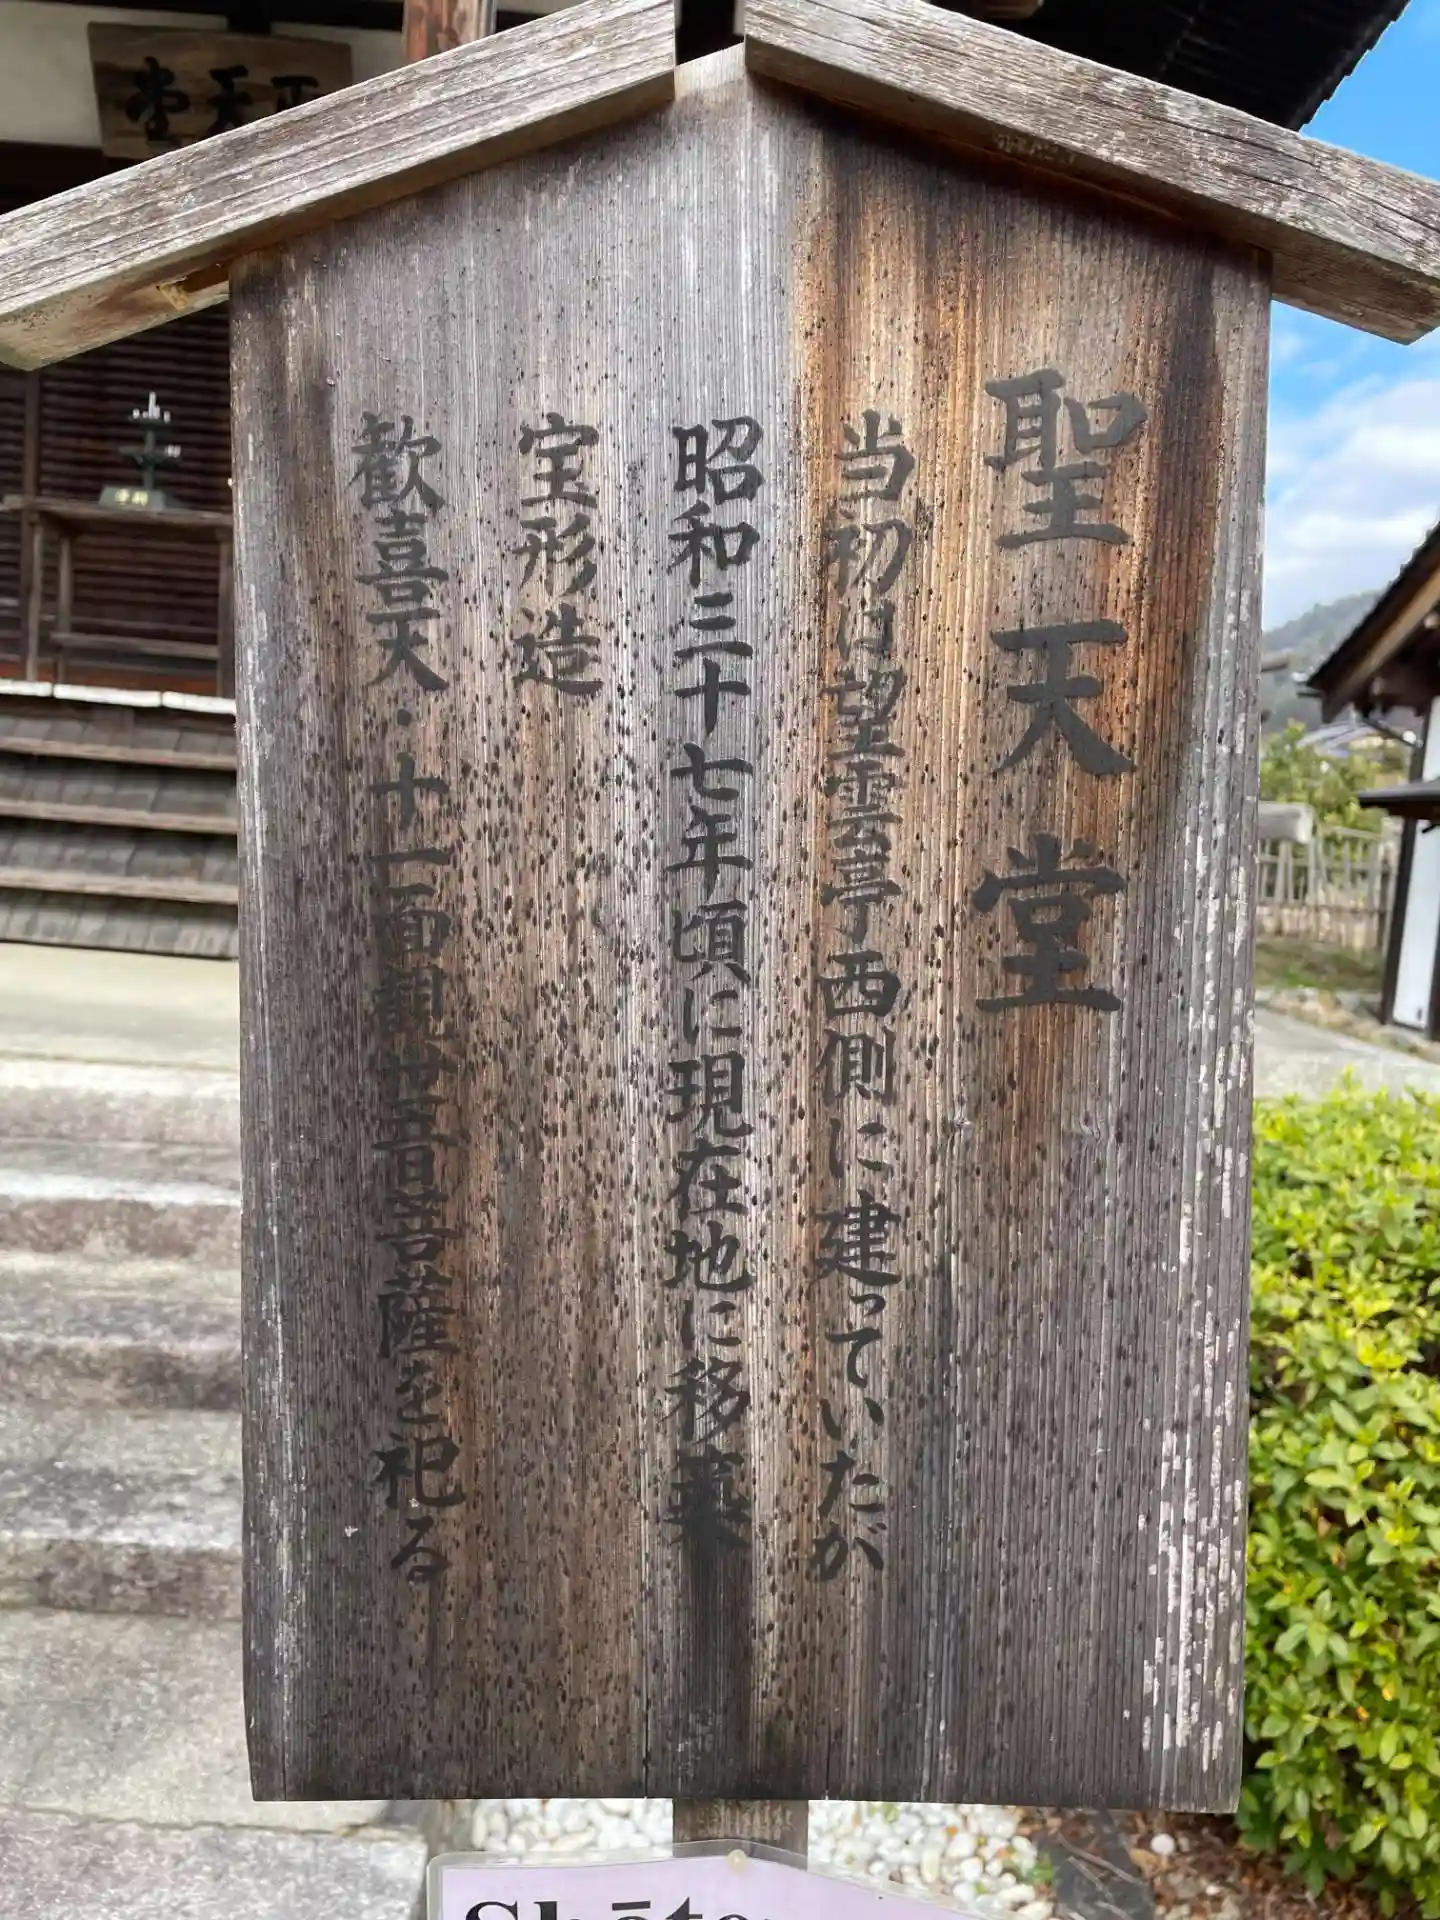 聖天堂
当初は望雲亭西側に建っていたが
昭和三十七年頃に現在地に移築
宝形造
歓喜天・十一面観世音菩薩を祀る
天堂